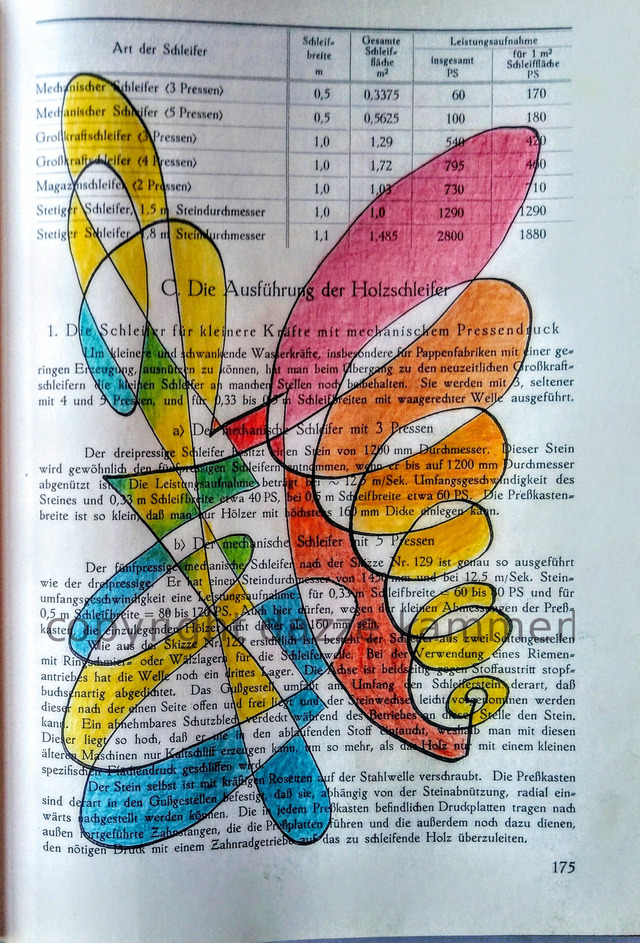 Art der Schleifer Schleif= breite m Gesamte Schleif= fläche m² Leistungsaufnahme insgesamt PS für 1 m² Schleiffläche PS
Mechanischer Schleifer (3 Pressen) 0,5 0,3375 60 170
Mechanischer Schleifer (5 Pressen) 0,5 0,5625 100 180
Großkraftschleifer (3 Pressen) 1,0 1,29 540 420
Großkraftschleifer (4 Pressen) 1,0 1,72 795 460
Magazinschleifer (2 Pressen) 1,0 1,03 730 710
Stetiger Schleifer, 1,5 m Steindurchmesser 1,0 1,0 1290 1290
Stetiger Schleifer, 1,8 m Steindurchmesser 1,1 1,485 2800 1880
C. Die Ausführung der Holzschleifer
1. Die Schleifer für kleinere Kräfte mit mechanischem Pressendruck
Um kleinere und schwankende Wasserkräfte, insbesondere für Pappenfabriken mit einer ge=
ringen Erzeugung, ausnützen zu können, hat man beim Übergang zu den neuzeitlichen Großkraft=
schleifern die kleinen Schleifer an manchen Stellen noch beibehalten. Sie werden mit 3, seltener
mit 4 und 5 Pressen, und für 0,33 bis 0,5 m Schleifbreiten mit waagerechter Welle ausgeführt.
a) Der mechanische Schleifer mit 3 Pressen
Der dreipressige Schleifer besitzt einen Stein von 1200 mm Durchmesser. Dieser Stein
wird gewöhnlich den fünfpressigen Schleifern entnommen, wenn er bis auf 1200 mm Durchmesser
abgenützt ist. Die Leistungsaufnahme beträgt bei 12,5 m/Sek. Umfangsgeschwindigkeit des
Steines und 0,33 m Schleifbreite etwa 40 PS, bei 0,5 m Schleifbreite etwa 60 PS. Die Preßkasten=
breite ist so klein, daß man nur Hölzer mit höchstens 160 mm Dicke einlegen kann.
b) Der mechanische Schleifer mit 5 Pressen
Der fünfpressige mechanische Schleifer nach der Skizze Nr. 129 ist genau so ausgeführt
wie der dreipressige. Er hat einen Steindurchmesser von 1450 mm und bei 12,5 m/Sek. Stein=
umfangsgeschwindigkeit eine Leistungsaufnahme für 0,33 m Schleifbreite = 60 bis 70 PS und für
0,5 m Schleifbreite = 80 bis 120 PS. Auch hier dürfen, wegen der kleinen Abmessungen der Preß=
kasten, die einzulegenden Hölzer nicht dicker als 160 mm sein.
Wie aus der Skizze Nr. 129 ersichtlich ist, besteht der Schleifer aus zwei Seitengestellen
mit Ringschmier= oder Wälzlagern für die Schleiferwelle. Bei der Verwendung eines Riemen=
antriebes hat die Welle noch ein drittes Lager. Die Achse ist beidseitig gegen Stoffaustritt stopf=
buchsenartig abgedichtet. Das Gußgestell umfaßt den Umfang den Schleiferstein derart, daß
dieser nach der einen Seite offen und frei liegt und der Steinwechsel leicht vorgenommen werden
kann. Ein abnehmbares Schutzblech verdeckt während des Betriebes diese Stelle den Stein.
Dieser liegt so hoch, daß er in den ablaufenden Stoff eintaucht, weshalb man mit diesen
älteren Maschinen nur Kaltschliff erzeugen kann, um so mehr, als das Holz nur mit einem kleinen
spezifischen Flächendruck geschliffen wird.
Der Stein selbst ist mit kräftigen Rosetten auf der Stahlwelle verschraubt. Die Preßkasten
sind derart in den Gußgestellen befestigt, daß sie, abhängig von der Steinabnützung, radial ein=
wärts nachgestellt werden können. Die in jedem Preßkasten befindlichen Druckplatten tragen nach
außen fortgeführte Zahnstangen, die die Preßplatten führen und die außerdem noch dazu dienen,
den nötigen Druck mit einem Zahnradgetriebe auf das zu schleifende Holz überzuleiten.
175
copyright